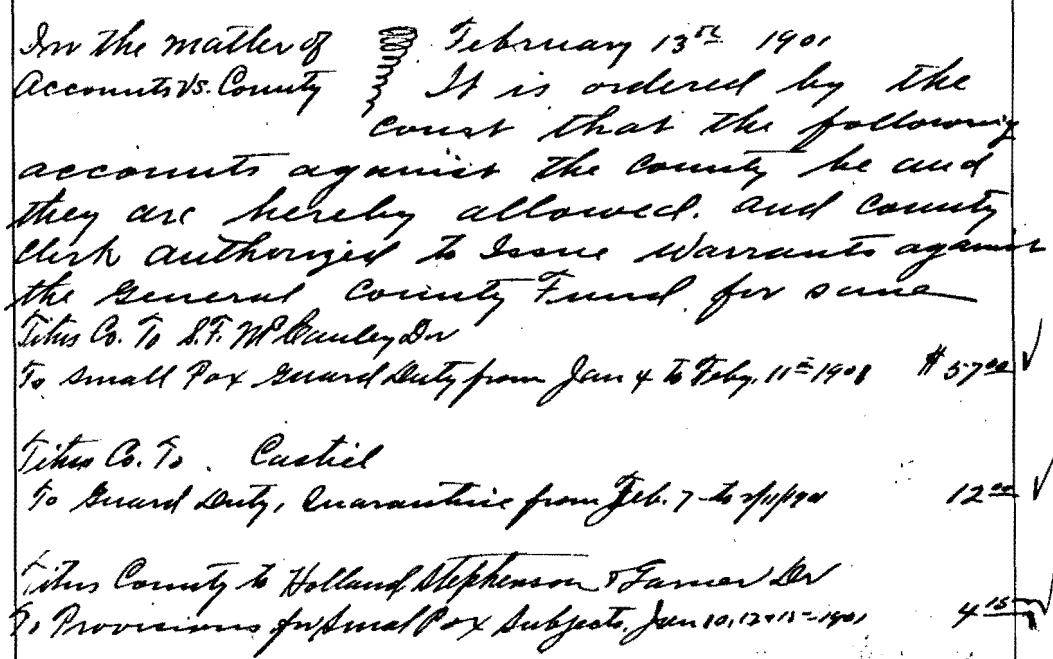 In the matter of February 13th 1901
Accounts Vs. County It is ordered by the
court that the following
accounts against the county be and
they are hereby allowed. and county
Clerk authorized to Issue Warrants against
the General County Fund for same
Titus Co. To S.F. McCauley Dr
To Small Pox Guard Duty from Jan 4 to Feby. 11th 1901 $57.00
Titus Co. To. Castiel
To Guard Duty, Quarantine from Feb. 7 to 2/11/1901 12.00
Titus County to Holland Stephenson & Dr
To Provisions for Smal Pox Subjects, Jan 10, 12 + 15 - 1901 4.15